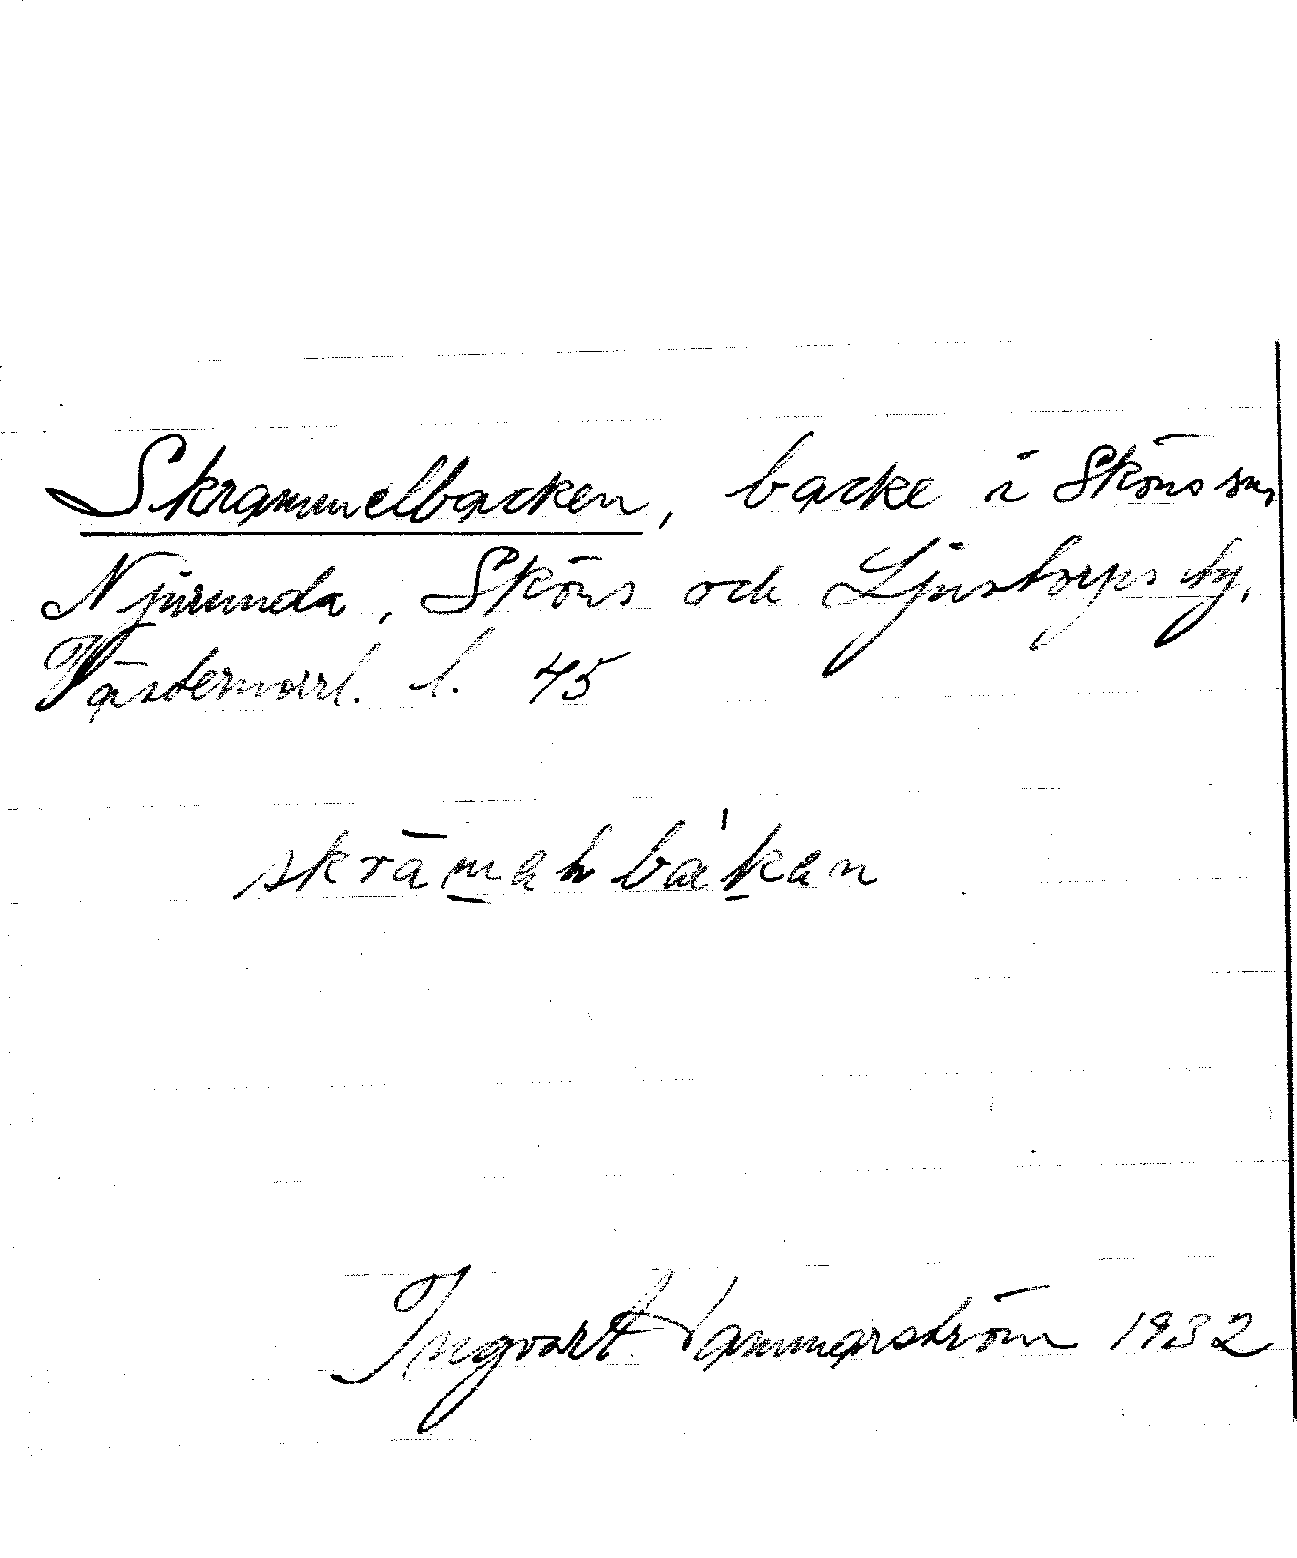 Skrammelbacken, backe i Sköns sn,
Njurunda, Sköns och Ljustorps tg,
Västernorrl. l. 45
Ingvar Hammarström 1932